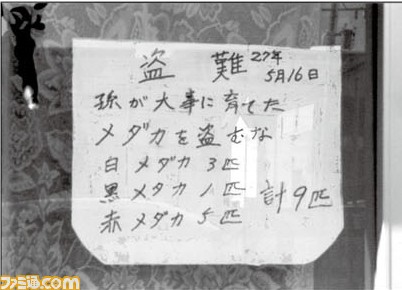 盗難 27年
5月16日
孫が大事に育てた
メダカを盗むな
白メダカ 3匹
黒メダカ 1匹 計9匹
赤メダカ 5匹
ファミ通.com